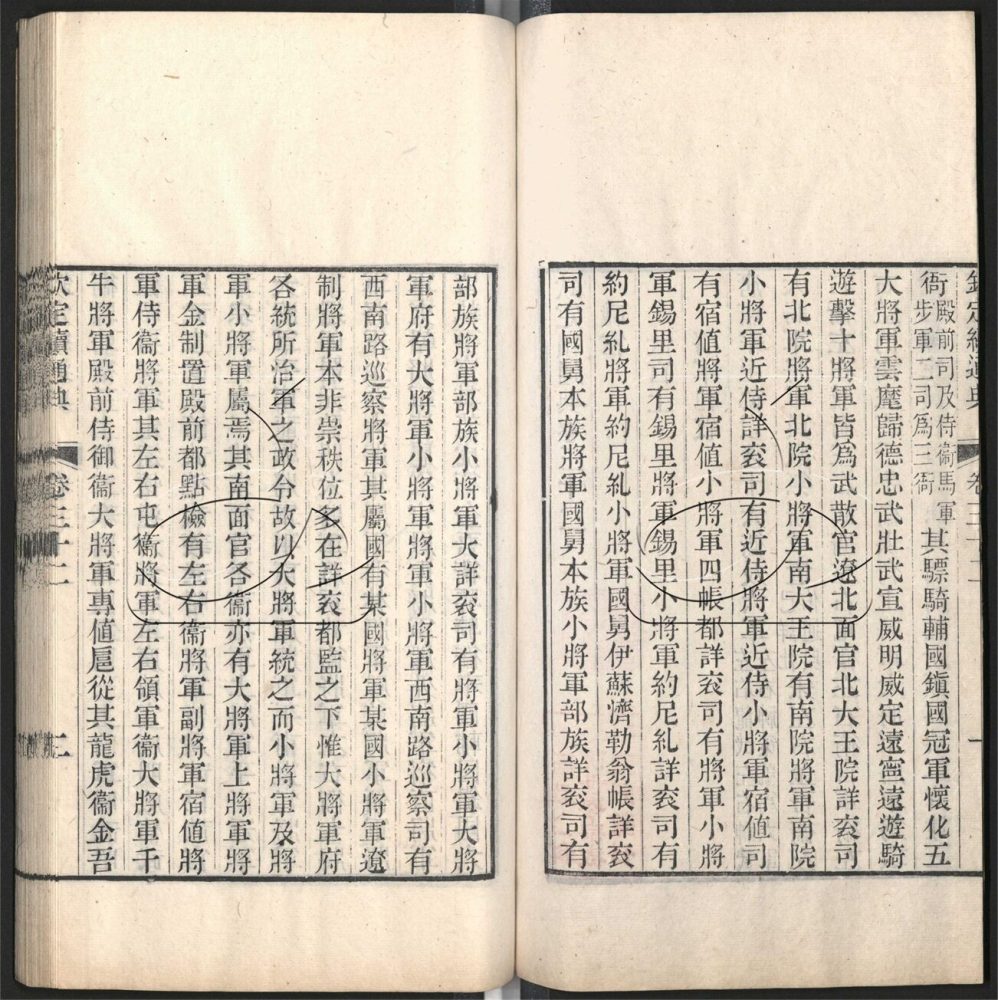 欽定續通典 卷三十二 一
衙殿前司及侍衞馬軍步軍二司爲三衙其驃騎輔國鎭國冠軍懷化五
大將軍雲麾歸德忠武壯武宣威明威定遠寧遠遊騎
遊擊十將軍皆爲武散官遼北面官北大王院詳袞司
有北院將軍北院小將軍南大王院有南院將軍南院
小將軍近侍詳袞司有近侍將軍近侍小將軍宿值司
有宿值將軍宿值小將軍四帳都詳袞司有將軍小將
軍錫里司有錫里將軍錫里小將軍約尼糺詳袞司有
約尼糺將軍約尼糺小將軍國舅伊蘇濟勒翁帳詳袞
司有國舅本族將軍國舅本族小將軍部族詳袞司有
部族將軍部族小將軍大詳袞司有將軍小將軍大將
軍府有大將軍小將軍將軍小將軍西南路巡察司有
西南路巡察將軍其屬國有某國將軍某國小將軍遼
制將軍本非崇秩位多在詳袞都監之下惟大將軍府
各統所治軍之政令故以大將軍統之而小將軍及將
軍小將軍屬焉其南面官各衞亦有大將軍上將軍將
軍金制置殿前都點檢有左右衞將軍副將軍宿値將
軍侍衞將軍其左右屯衞將軍左右領軍衞大將軍千
牛將軍殿前侍御衞大將軍專値扈從其龍虎衞金吾
欽定續通典 卷三十二 二